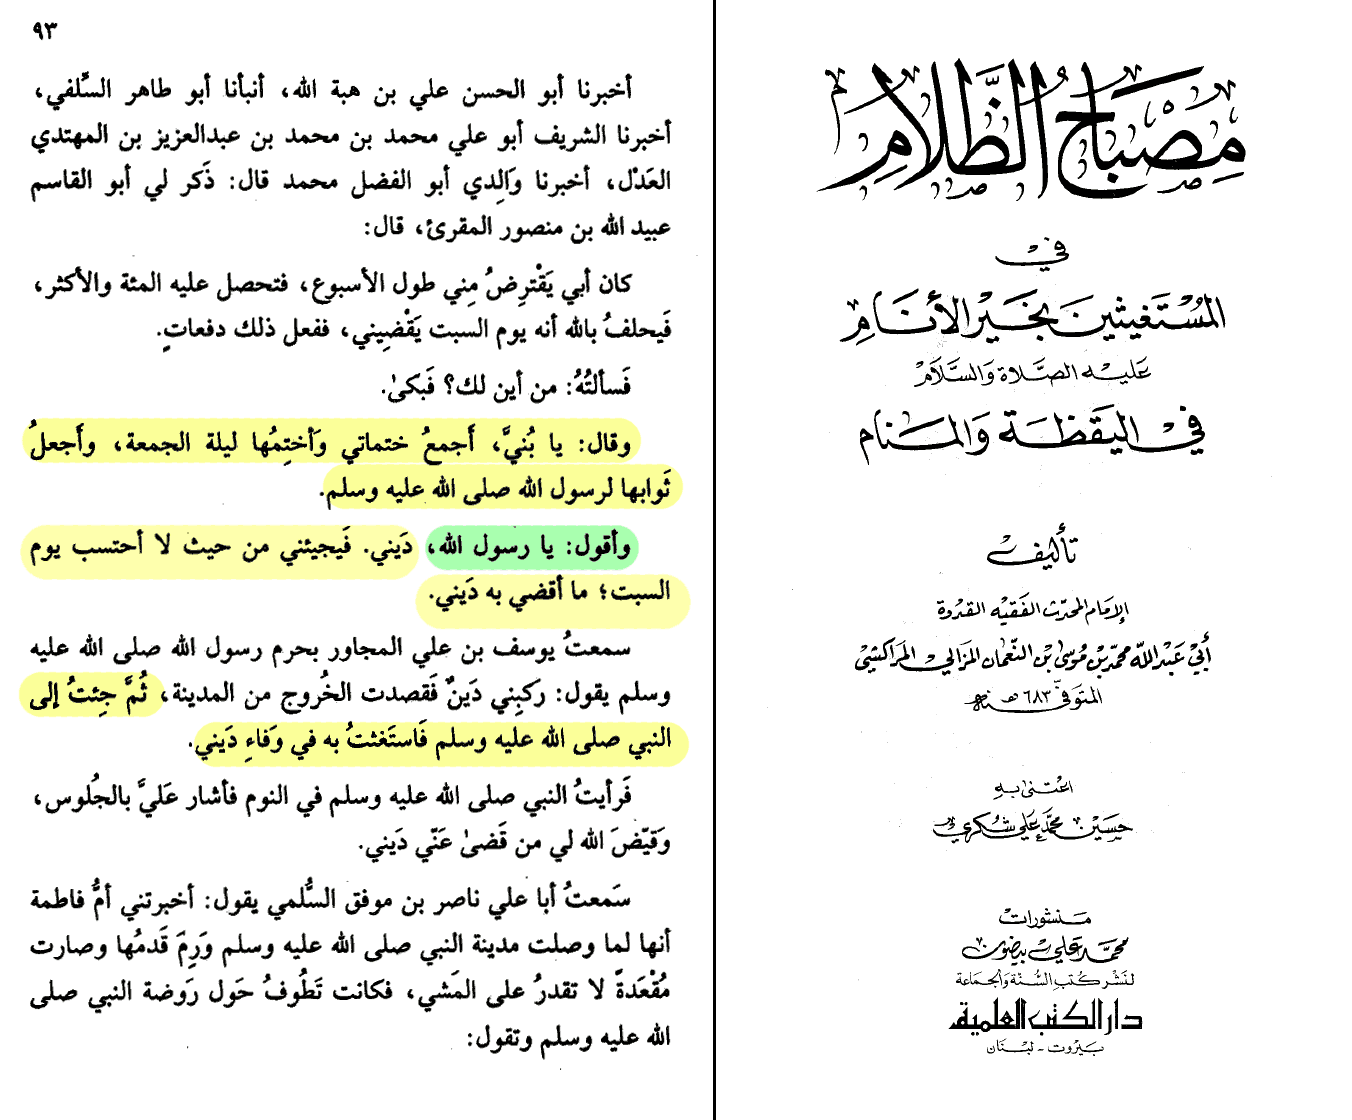 مِصْبَاحُ الظَّلَامِ
في
المُسْتَغِيثِينَ بِخَيْرِ الأَنَامِ
عَلَيْهِ الصَّلَاة وَالسَّلَامْ
في اليَقَظَةِ وَالمنَام
تأليف
الإمَام المحدّث الفَقيْه القدْوة
أبي عَبْد اللّه محمّد بْن مُوسَى بْن النّعمان المزَالي المرَاكشيّ
المتوفّى ٦٨٣ هـ
اعْتنى بِهِ
حسَين محمَّد عَلي شكري
منشورات
محمّد علي بيضون
لنَشْر كُتبِ السُّنّة وَالجمَاعة
دار الكتب العلمية
بَيْروت - لبْنَان
٩٣
أخبرنا أبو الحسن علي بن هبة الله، أنبأنا أبو طاهر السِّلفي،
أخبرنا الشريف أبو علي محمد بن محمد بن عبدالعزيز بن المهتدي
العَدْل، أخبرنا وَالِدي أبو الفضل محمد قال: ذَكر لي أبو القاسم
عبيد الله بن منصور المقرئ، قال:
كان أبي يَقْترِضُ مِني طول الأسبوع، فتحصل عليه المئة والأكثر،
فَيحلفُ بالله أنه يوم السبت يَقْضِيني، ففعل ذلك دفعاتٍ.
فَسألتُهُ: من أين لك؟ فَبكىٰ.
وقال: يا بُنيَّ، أَجمعُ ختماتي وَأختِمُها ليلة الجمعة، وأَجعلُ
ثَوابها لرسول الله صلى الله عليه وسلم.
وأقول: يا رسول الله، دَيني. فَيجيئني من حيث لا أحتسب يوم
السبت؛ ما أقضي به دَيني.
سمعتُ يوسف بن علي المجاور بحرم رسول الله صلى الله عليه
وسلم يقول: ركبِني دَينٌ فَقصدت الخُروج من المدينة، ثُمَّ جِئتُ إلى
النبي صلى الله عليه وسلم فَاستَغثتُ به في وَفاءِ دَيني.
فَرأيتُ النبي صلى الله عليه وسلم في النوم فأشار عَليَّ بالجُلوس،
وَقيّضَ الله لي من قَضىٰ عَنّي دَيني.
سَمعتُ أبا علي ناصر بن موفق السُّلمي يقول: أخبرتني أمُّ فاطمة
أنها لما وصلت مدينة النبي صلى الله عليه وسلم وَرِمَ قَدمُها وصارت
مُقْعَدةً لا تقدرُ على المَشي، فكانت تَطُوفُ حَول رَوضة النبي صلى
الله عليه وسلم وتقول: